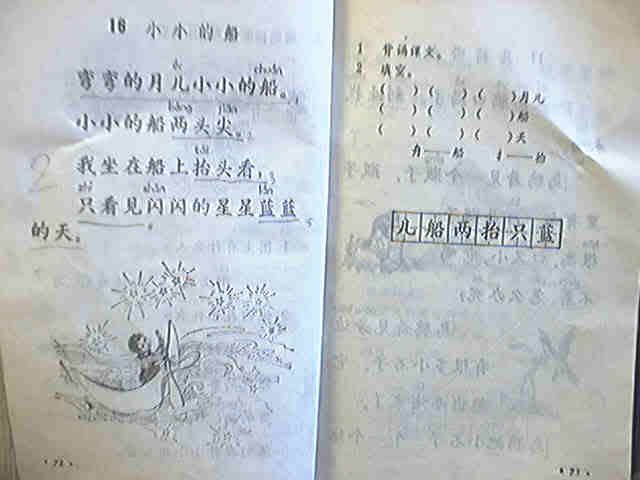 16 小小的船
ér chuán
弯弯的月儿小小的船。
liǎng jiān
小小的船两头尖。
tái
我坐在船上抬头看，
zhǐ shǎn lán
只看见闪闪的星星蓝蓝
的天。
2
1 背诵课文。
2 填空。
( ) ( ) ( )月儿
( ) ( ) ( )船
( ) ( ) ( )天
儿船两抬只蓝